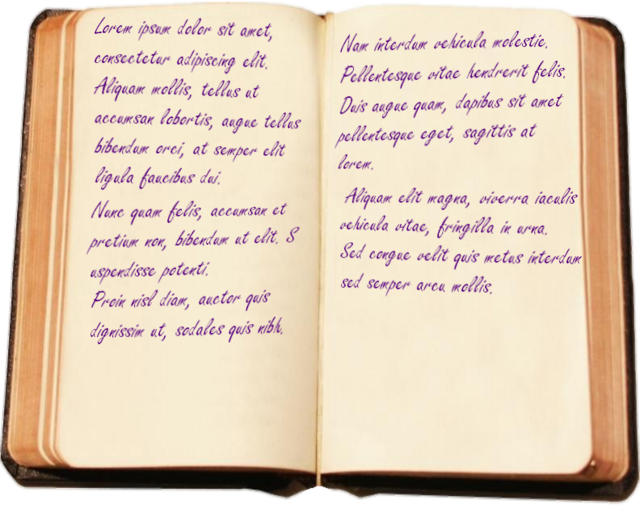 Lorem ipsum dolor sit amet,
consectetur adipiscing elit.
Aliquam mollis, tellus ut
accumsan lobortis, augue tellus
bibendum orci, at semper elit
ligula faucibus dui.
Nunc quam felis, accumsan et
pretium non, bibendum ut elit. S
uspendisse potenti.
Proin nisl diam, auctor quis
dignissim ut, sodales quis nibh.
Nam interdum vehicula molestie.
Pellentesque vitae hendrerit felis.
Duis augue quam, dapibus sit amet
pellentesque eget, sagittis at
lorem.
Aliquam elit magna, viverra iaculis
vehicula vitae, fringilla in urna.
Sed congue velit quis metus interdum
sed semper arcu mollis.